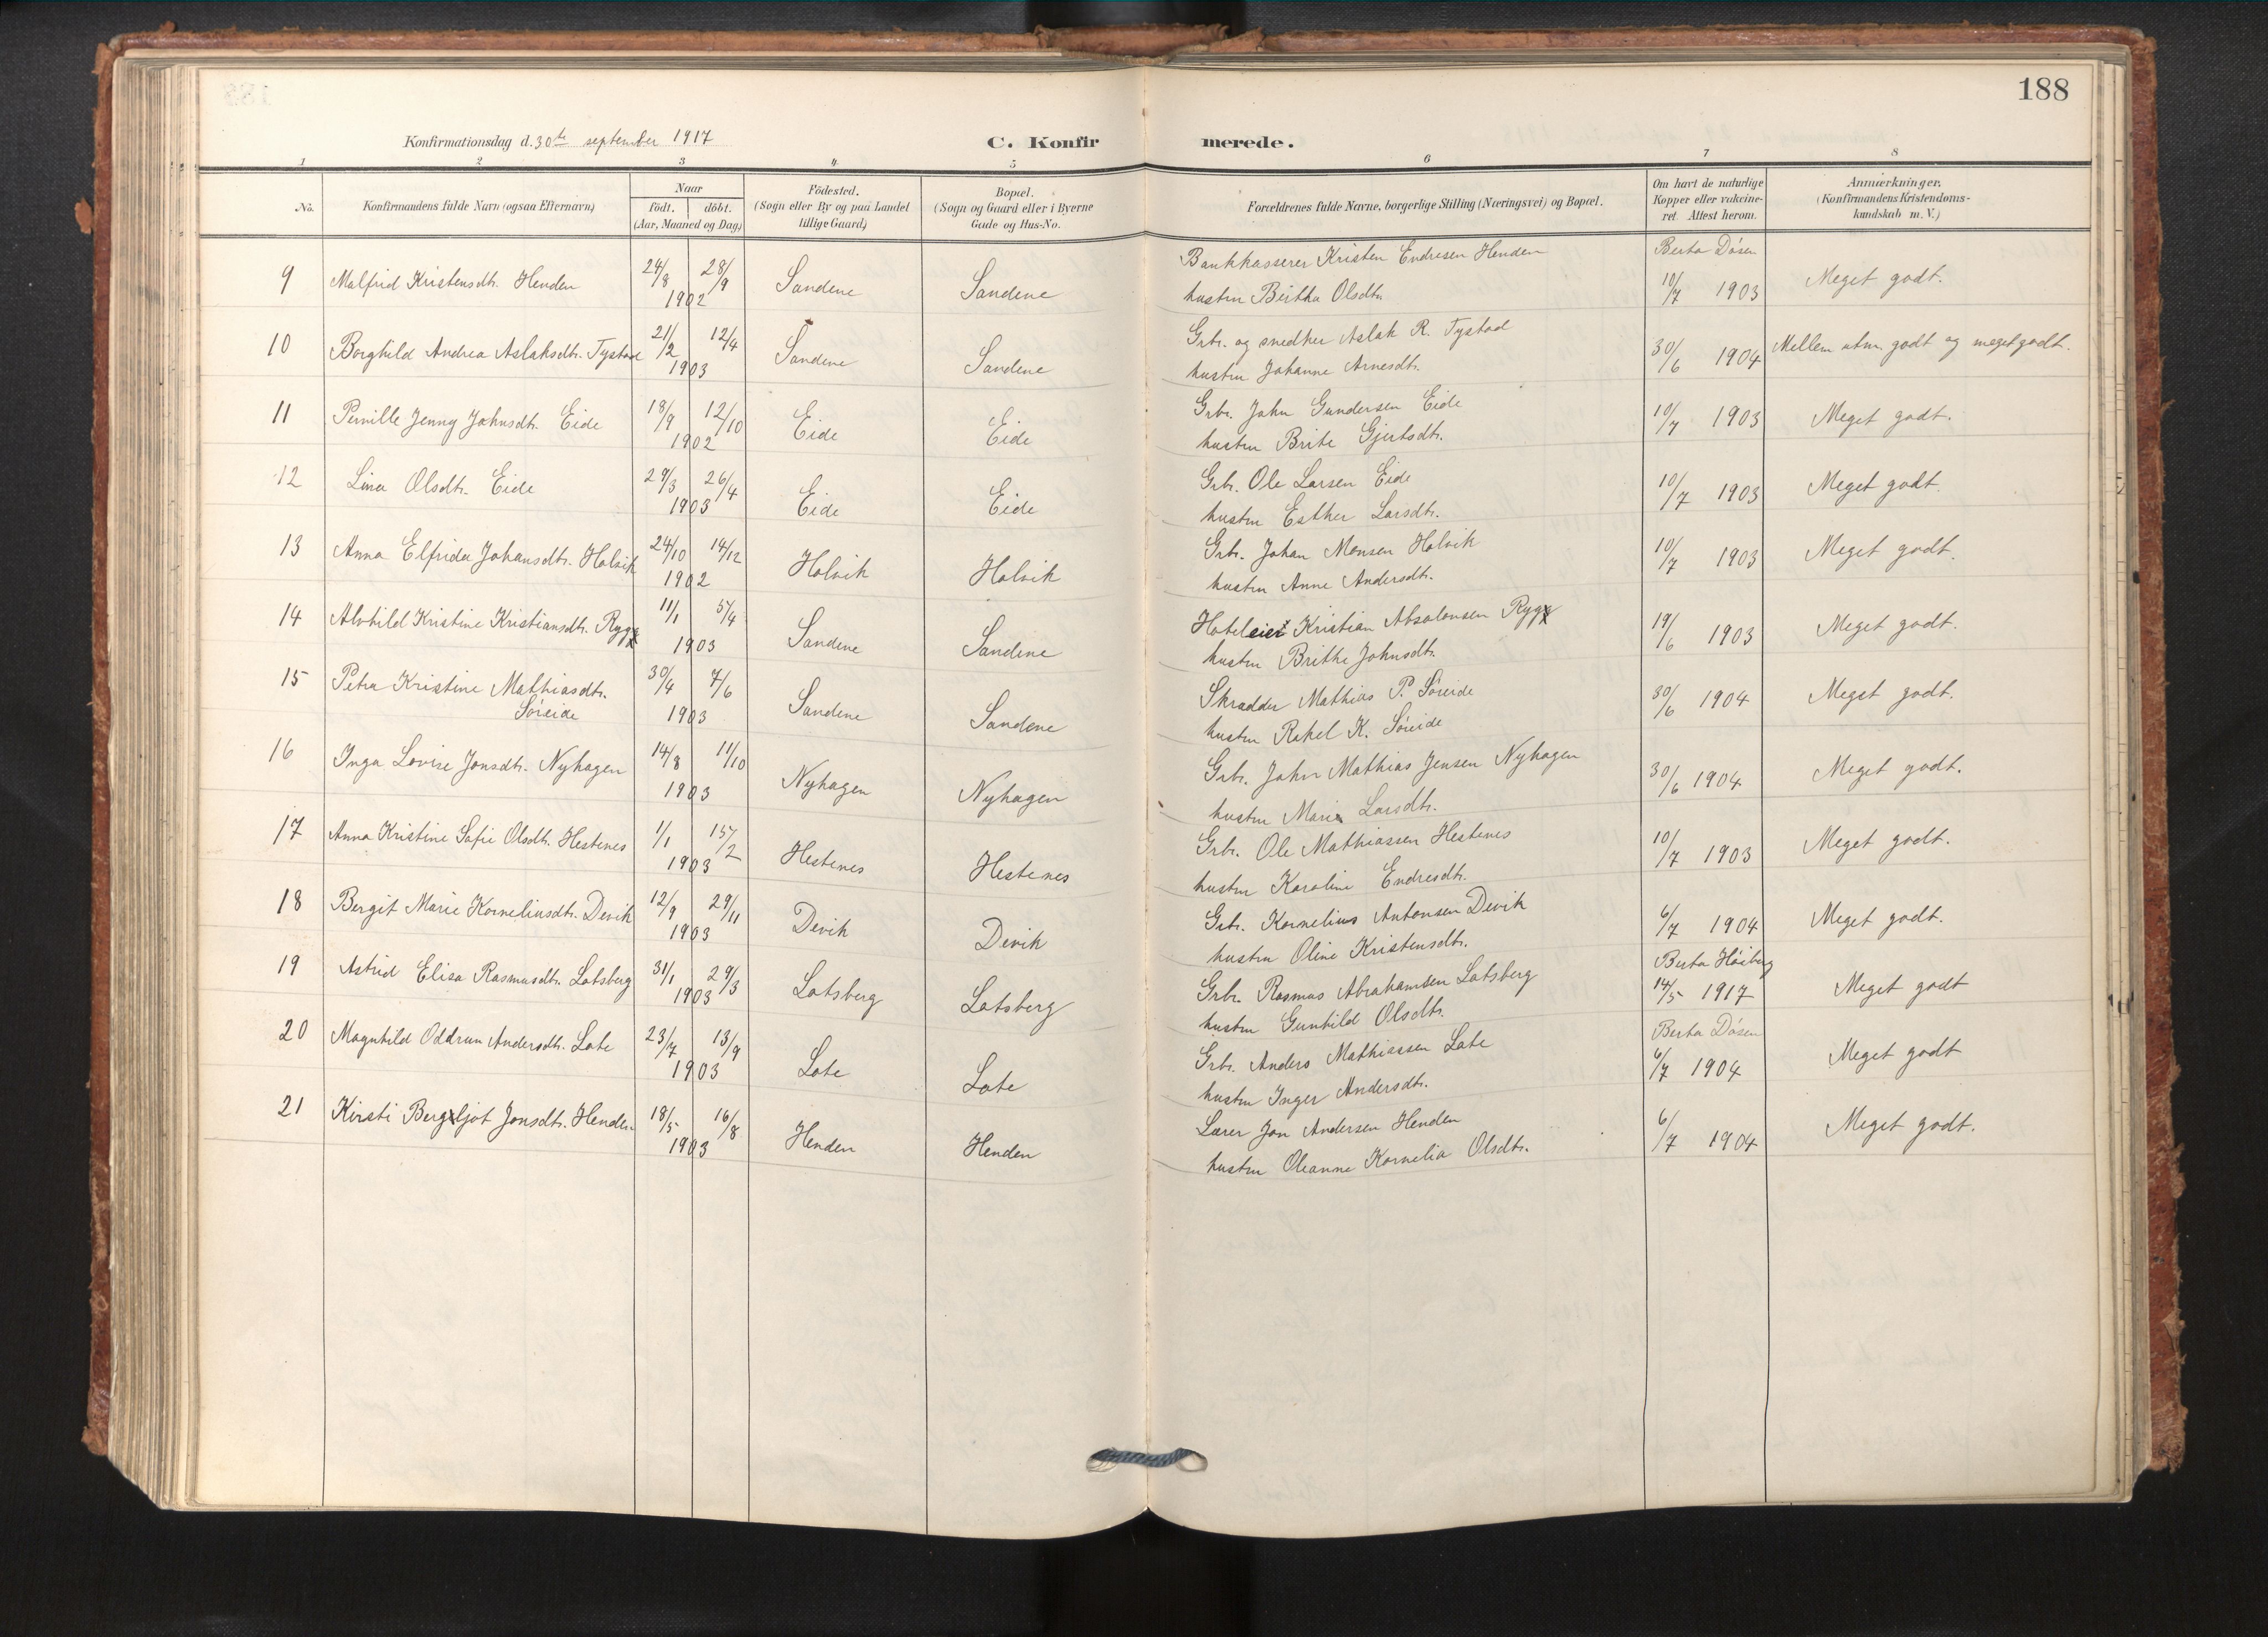 188
Konfirmationsdag d. 30te september 1917
C. Konfirmerede.
1 2 3 4 5 6 7 8
No.
Konfirmandens fulde Navn (ogsaa Efternavn)
Naar
født. døbt.
(Aar, Maaned og Dag)
Födested.
(Sogn eller By og paa Landet
tillige Gaard)
Bopæl.
(Sogn og Gaard eller i Byerne
Gade og Hus-No.
Forældrenes fulde Navne, borgerlige Stilling (Næringsvei) og Bopæl.
Om havt de naturlige
Kopper eller vakcine-
ret. Attest herom.
Anmærkninger.
(Konfirmandens Kristendoms-
kundskab m. V.)
9 Malfrid Kristensdtr. Henden 24/8 28/9 1902 Sandene Sandene Bankkasserer Kristen Endresen Henden Berta Døsen
hustru Birtha Olsdtr. 10/7 1903 Meget godt.
10 Borghild Andrea Aslaksdtr. Tystad 21/2 12/4 1903 Sandene Sandene Grbr. og snedker Aslak R. Tystad
hustru Johanne Arnesdtr. 30/6 1904 Mellem utm. godt og meget godt.
11 Pernille Jenny Johnsdtr. Eide 18/9 12/10 1902 Eide Eide Grbr. John Gundersen Eide
hustru Brite Gjertsdtr. 10/7 1903 Meget godt.
12 Lina Olsdtr. Eide 29/3 26/4 1903 Eide Eide Grbr. Ole Larsen Eide
hustru Esther Larsdtr. 10/7 1903 Meget godt.
13 Anna Elfrida Johansdtr. Holvik 24/10 14/12 1902 Holvik Holvik Grbr. Johan Monsen Holvik
hustru Anne Andersdtr. 10/7 1903 Meget godt.
14 Alvhild Kristine Kristiansdtr. Rygg 11/1 5/4 1903 Sandene Sandene Hoteleier Kristian Absalonsen Rygg
hustru Brithe Johnsdtr. 19/6 1903 Meget godt.
15 Petra Kristine Mathiasdtr. 30/4 7/6 1903 Sandene Sandene Skradder Mathias P. Søreide
Søreide hustru Rakel K. Søreide 30/6 1904 Meget godt.
16 Inga Lovise Jonsdtr. Nyhagen 14/8 11/10 1903 Nyhagen Nyhagen Grbr. John Mathias Jensen Nyhagen
hustru Marie Larsdtr. 30/6 1904 Meget godt.
17 Anna Kristine Sofie Olsdtr. Hestenes 1/1 15/2 1903 Hestenes Hestenes Grbr. Ole Mathiassen Hestenes
hustru Karoline Endresdtr. 10/7 1903 Meget godt.
18 Bergit Marie Korneliusdtr. Devik 12/9 29/11 1903 Devik Devik Grbr. Kornelius Antonsen Devik
hustru Oline Kristensdtr. 6/7 1904 Meget godt.
19 Astrid Elisa Rasmusdtr. Lotsberg 31/1 29/3 1903 Lotsberg Lotsberg Grbr. Rasmus Abrahamsen Lotsberg Berta Høiberg
hustru Gunhild Olsdtr. 14/5 1917 Meget godt
20 Magnhild Oddrun Andersdtr. Lote 23/7 13/9 1903 Lote Lote Grbr. Anders Mathiassen Lote Berta Døsen
hustru Inger Andersdtr. 6/7 1904 Meget godt
21 Kirsti Bergljot Jonsdtr. Henden 18/5 16/8 1903 Henden Henden Lærer Jon Andersen Henden
hustru Oleanne Kornelia Olsdtr. 6/7 1904 Meget godt.